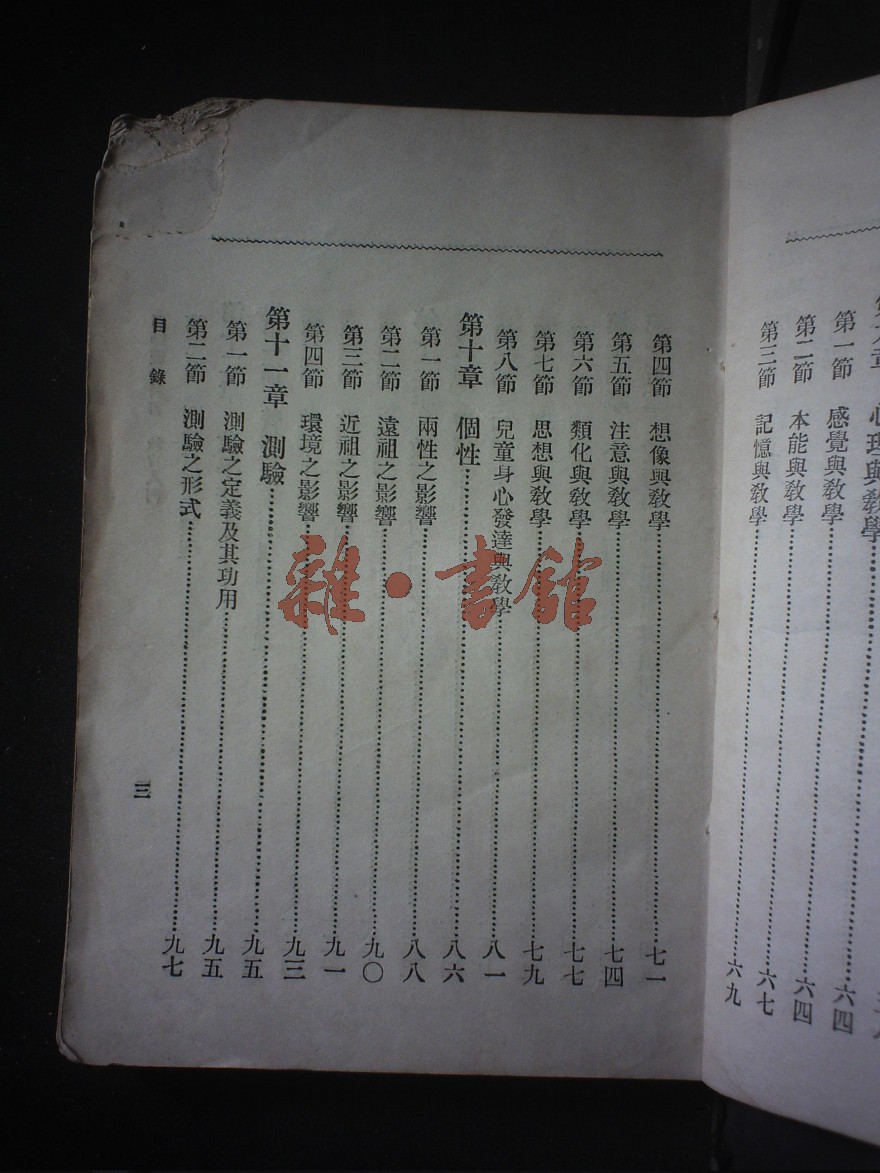 心理與敎學
第一節 感覺與敎學 六四
第二節 本能與敎學 六四
第三節 記憶與敎學 六七
六九
第四節 想像與敎學 七一
第五節 注意與敎學 七四
第六節 類化與敎學 七七
第七節 思想與敎學 七九
第八節 兒童身心發達與敎學 八一
第十章 個性 八六
第一節 兩性之影響 八八
第二節 遠祖之影響 九〇
第三節 近祖之影響 九一
第四節 環境之影響 九三
第十一章 測驗 九五
第一節 測驗之定義及其功用 九五
第二節 測驗之形式 九七
目錄
三
雜·書館